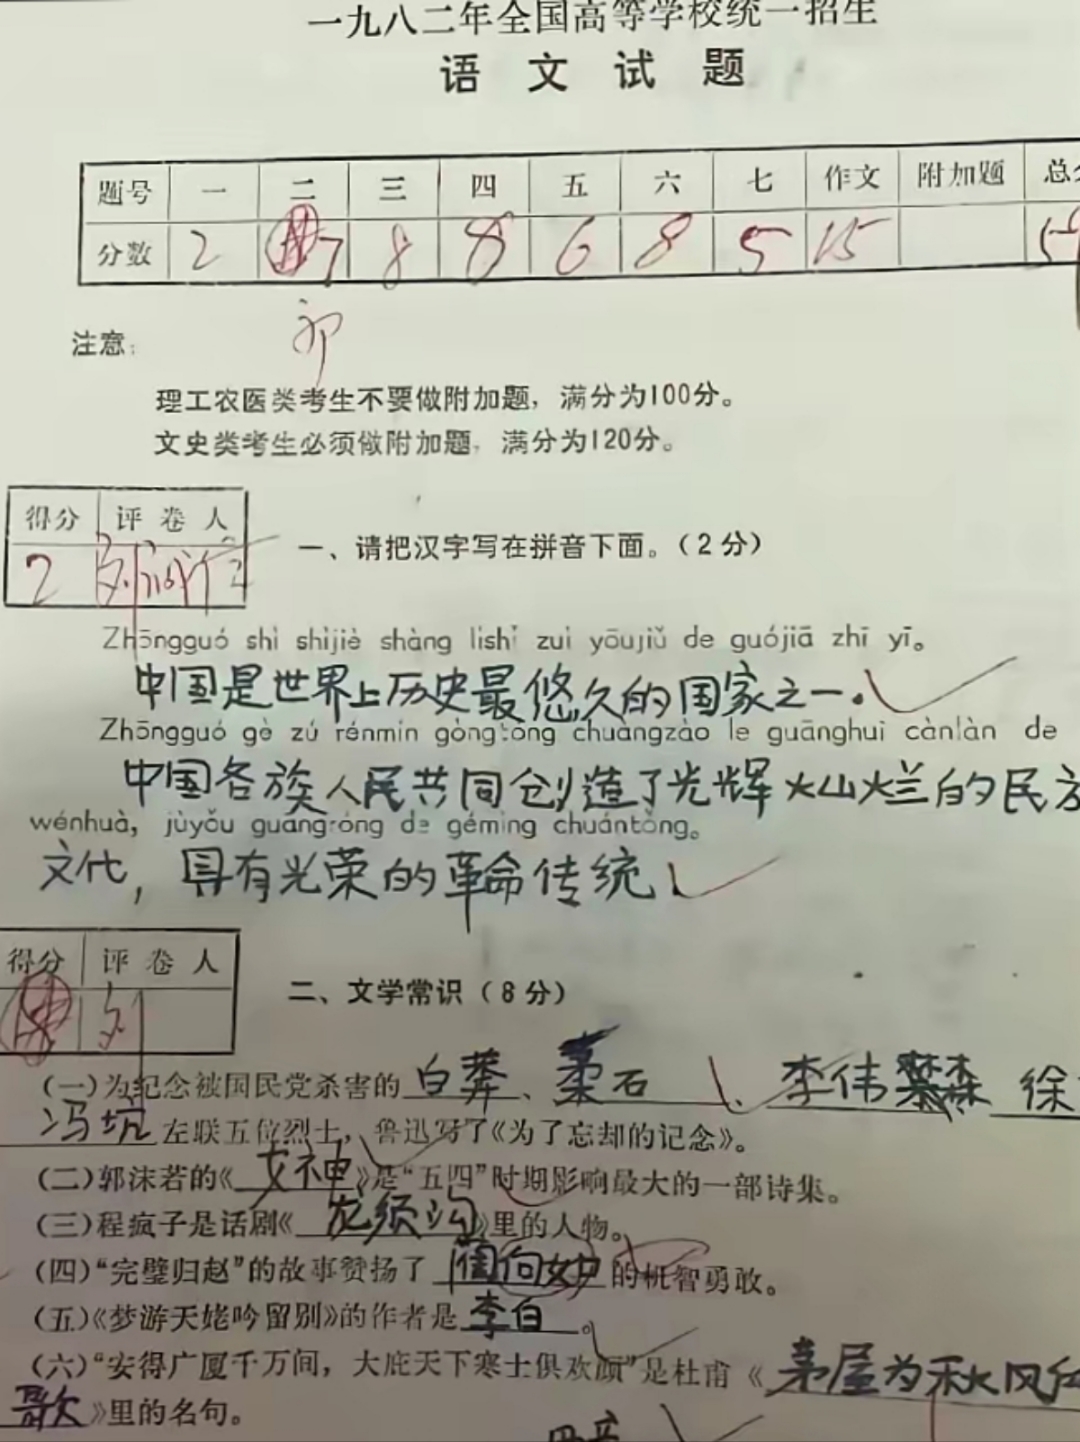 一九八二年全国高等学校统一招生
语文试题
题号 一 二 三 四 五 六 七 作文 附加题 总
分数 2 7 8 8 6 8 5 15
注意：
理工农医类考生不要做附加题，满分为100分。
文史类考生必须做附加题，满分为120分。
得分 评卷人
2
一、请把汉字写在拼音下面。（2分）
Zhōngguó shì shìjiè shàng lìshǐ zuì yōujiǔ de guójiā zhī yī。
中国是世界上历史最悠久的国家之一。
Zhōngguó gè zú rénmín gòngtóng chuàngzào le guānghuī cànlàn de
中国各族人民共同创造了光辉灿烂的民
wénhuà, jùyǒu guāngróng de gémìng chuántǒng。
文化，具有光荣的革命传统
得分 评卷人
刘
二、文学常识（8分）
（一）为纪念被国民党杀害的白莽、柔石、李伟森 徐
冯坑左联五位烈士，鲁迅写了《为了忘却的记念》。
（二）郭沫若的《女神》是“五四”时期影响最大的一部诗集。
（三）程疯子是话剧《龙须沟》里的人物。
（四）“完璧归赵”的故事赞扬了 的机智勇敢。
（五）《梦游天姥吟留别》的作者是李白。
（六）“安得广厦千万间，大庇天下寒士俱欢颜”是杜甫《茅屋为秋风
歌》里的名句。